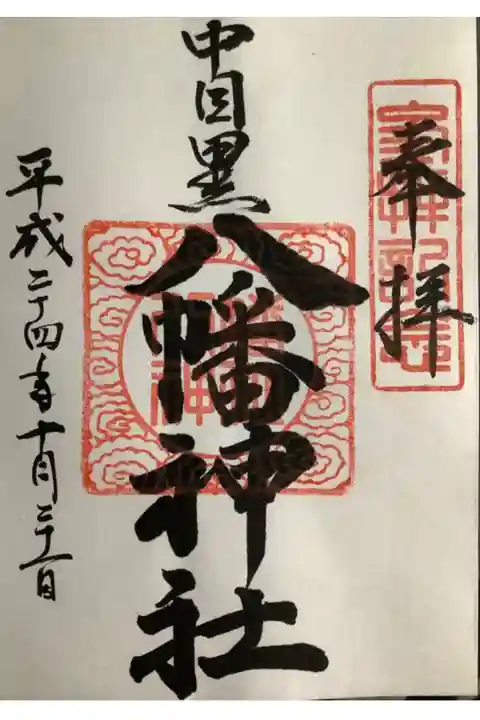 奉拝
参拝記念
中目黒八幡神社
平成二十四年十月二十一日